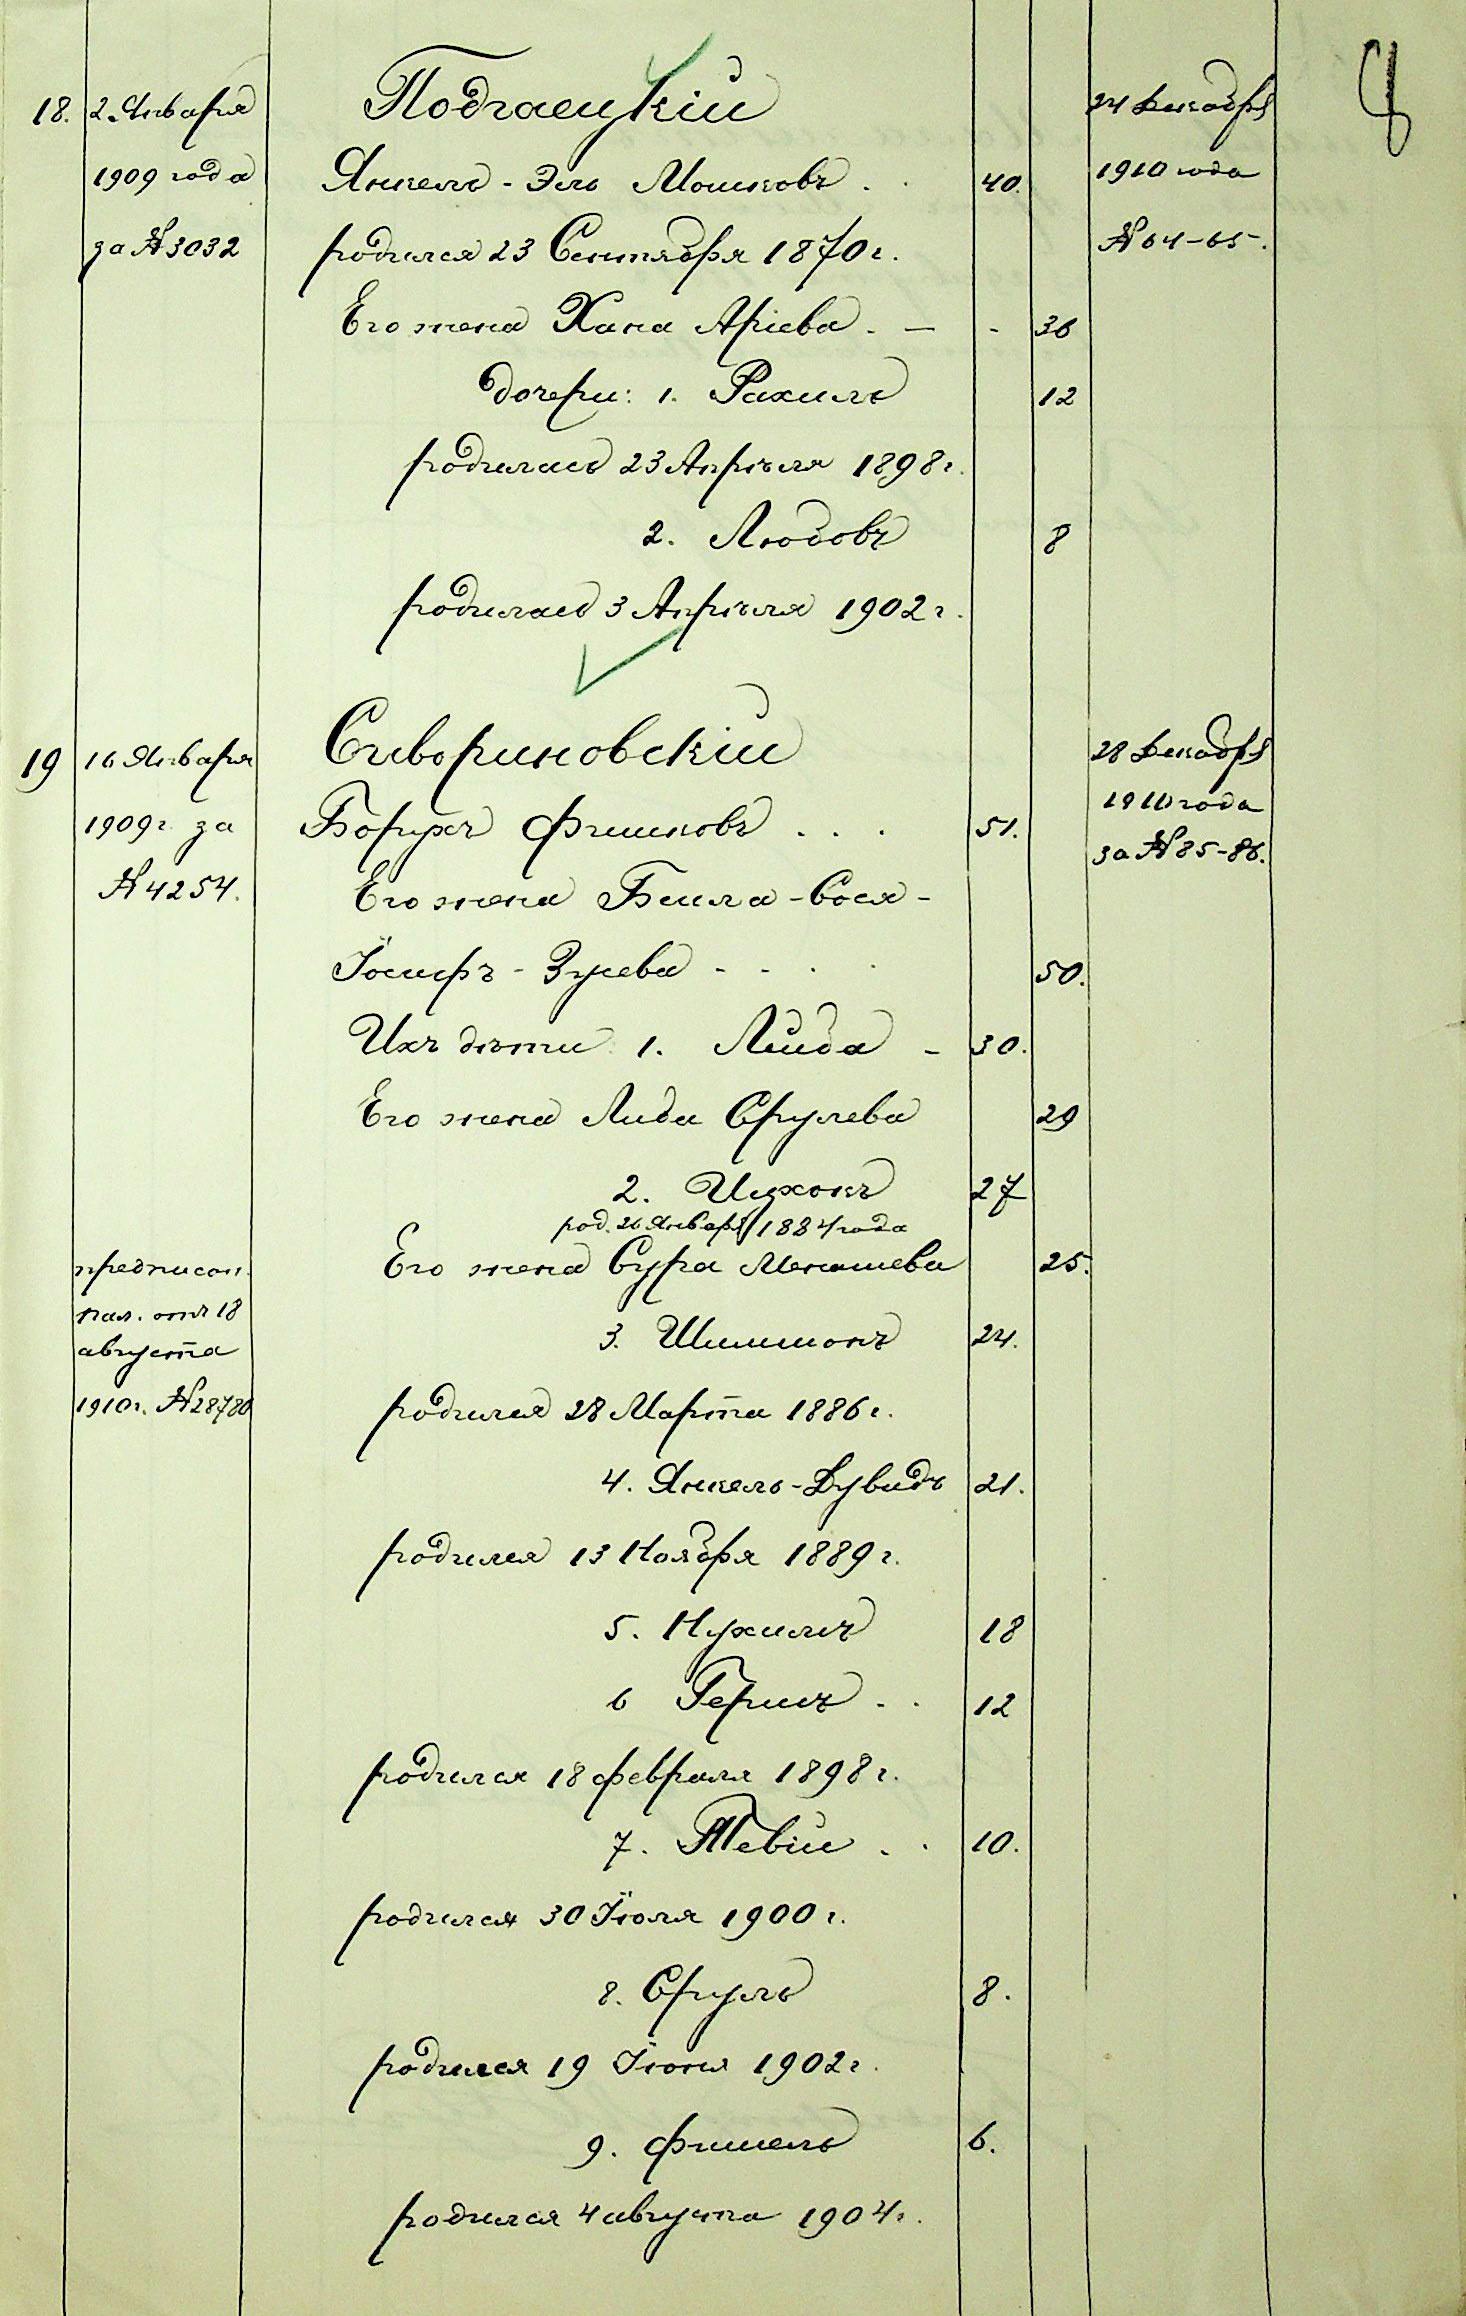 18. 2. Января Подгаецкій 24 Декабря
1909 года Янкель-Эль Мошковъ . . 40. 1910 года
за № 3032 родился 23 Сентября 1870 г. № 64-65.
Его жена Хана Аріева - — - 36
дочери: 1. Рахиль 12
родилась 23 Апрѣля 1898 г.
2. Любовь 8
родилась 3 Апрѣля 1902 г.
19 16 Января Сивориновскій 28 Декабря
1909 г. за Борухъ Фишковъ . . . 51. 1910 года
№ 4254. Его жена Бейла-Сося- за № 85-86.
Іосифъ-Зусева - - . . 50.
Ихъ дѣти: 1. Лейба - 30.
Его жена Либа Срулева 29
2. Ицхокъ 27
род. 26 Января 1884 года
предписан. Его жена Сура Менашева 25.
пал. отъ 18 3. Шимшонъ 24.
августа
1910 г. № 28780 родился 28 Марта 1886 г.
4. Янкель-Дувидъ 21.
родился 13 Ноября 1889 г.
5. Нухимъ 18
6 Гершъ - . 12
родился 18 февраля 1898 г.
7. Тевій . . 10.
родился 30 Іюля 1900 г.
8. Сруль 8.
родился 19 Іюня 1902 г.
9. Фишель 6.
родился 4 августа 1904 г.